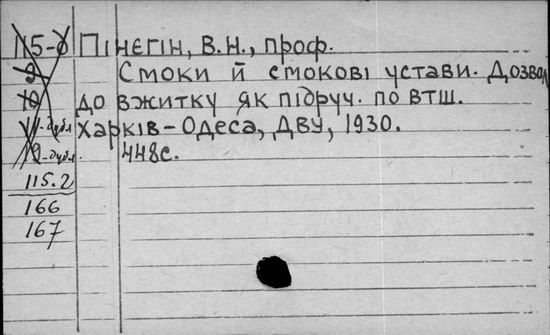 115-8 Пінєгін, В.Н., проф.
9 Смоки й смокові устави. Дозвол
10 до вжитку як підруч. по втш.
11-дубл Харків-Одеса, ДВУ, 1930.
12-дубл. 448с.
115.2
166
167